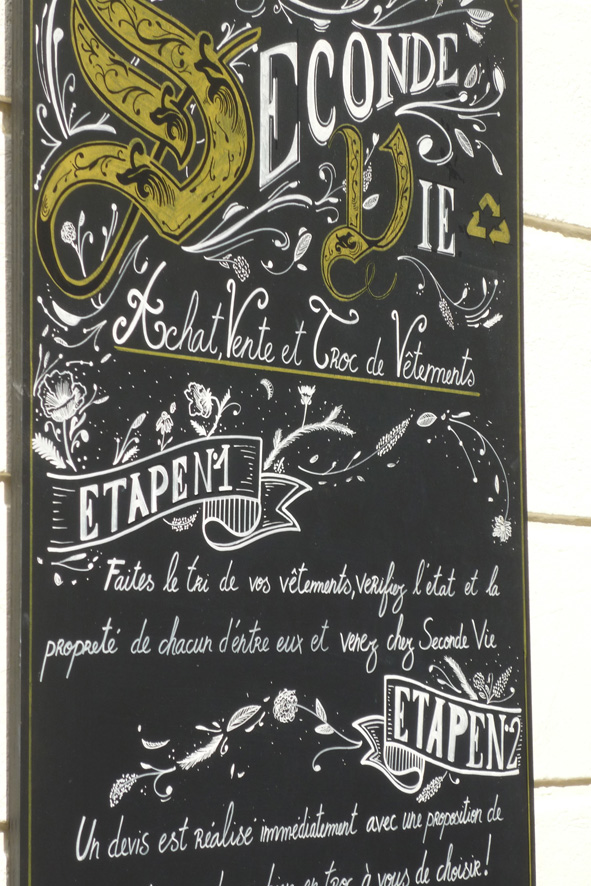 SECONDE
VIE
Achat, Vente et Troc de Vêtements
ETAPE N°1
Faites le tri de vos vêtements, verifiez l'état et la
propreté de chacun d'entre eux et venez chez Seconde Vie
ETAPE N°2
Un devis est réalisé immédiatement avec une proposition de
en troc à vous de choisir!